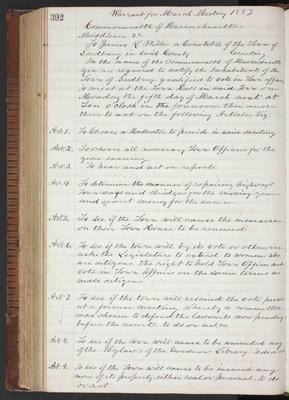 392
Warrant for March Meeting 1883
Commonwealth of Massachusetts
Middlesex SS.
To James R. Willis a Constable of the Town of
Sudbury in said County Greeting
In the name of the Commonwealth of Massachusetts
you are required to notify the Inhabitants of the
Town of Sudbury, qualified to vote in Town affairs
to meet at the Town Hall in said Town on
Monday the fifth day of March next at
Ten o'clock in the forenoon then and
there to act on the following Articles Viz
Art. 1. To Choose a Moderator to preside in said meeting
Art. 2. To choose all necessary Town Officers for the
year ensuing
Art. 3. To hear and act on reports
Art. 4. To determine the manner of repairing highways
town ways and bridges for the ensuing year
and grant money for the same
Art. 5. To see if the Town will cause the insurance
on their Town House to be renewed
Art. 6. To see if the town will, by its vote or otherwise
ask the Legislature to extend to women who
are citizens, the right to hold Town Offices and
vote in Town Affairs on the same terms as
male citizens
Art. 7. To see if the town will rescind the vote passed
at a former meeting, whereby a committee
was chosen to defend the lawsuits now pending
before the courts. to do or act
Art. 8. To see if the Town will cause to be amended any
of the Bylaws of the Goodnow Library to do or act
Art. 9. To see if the Town will cause to be insured any
more of its property, either real or personal. to do
or act